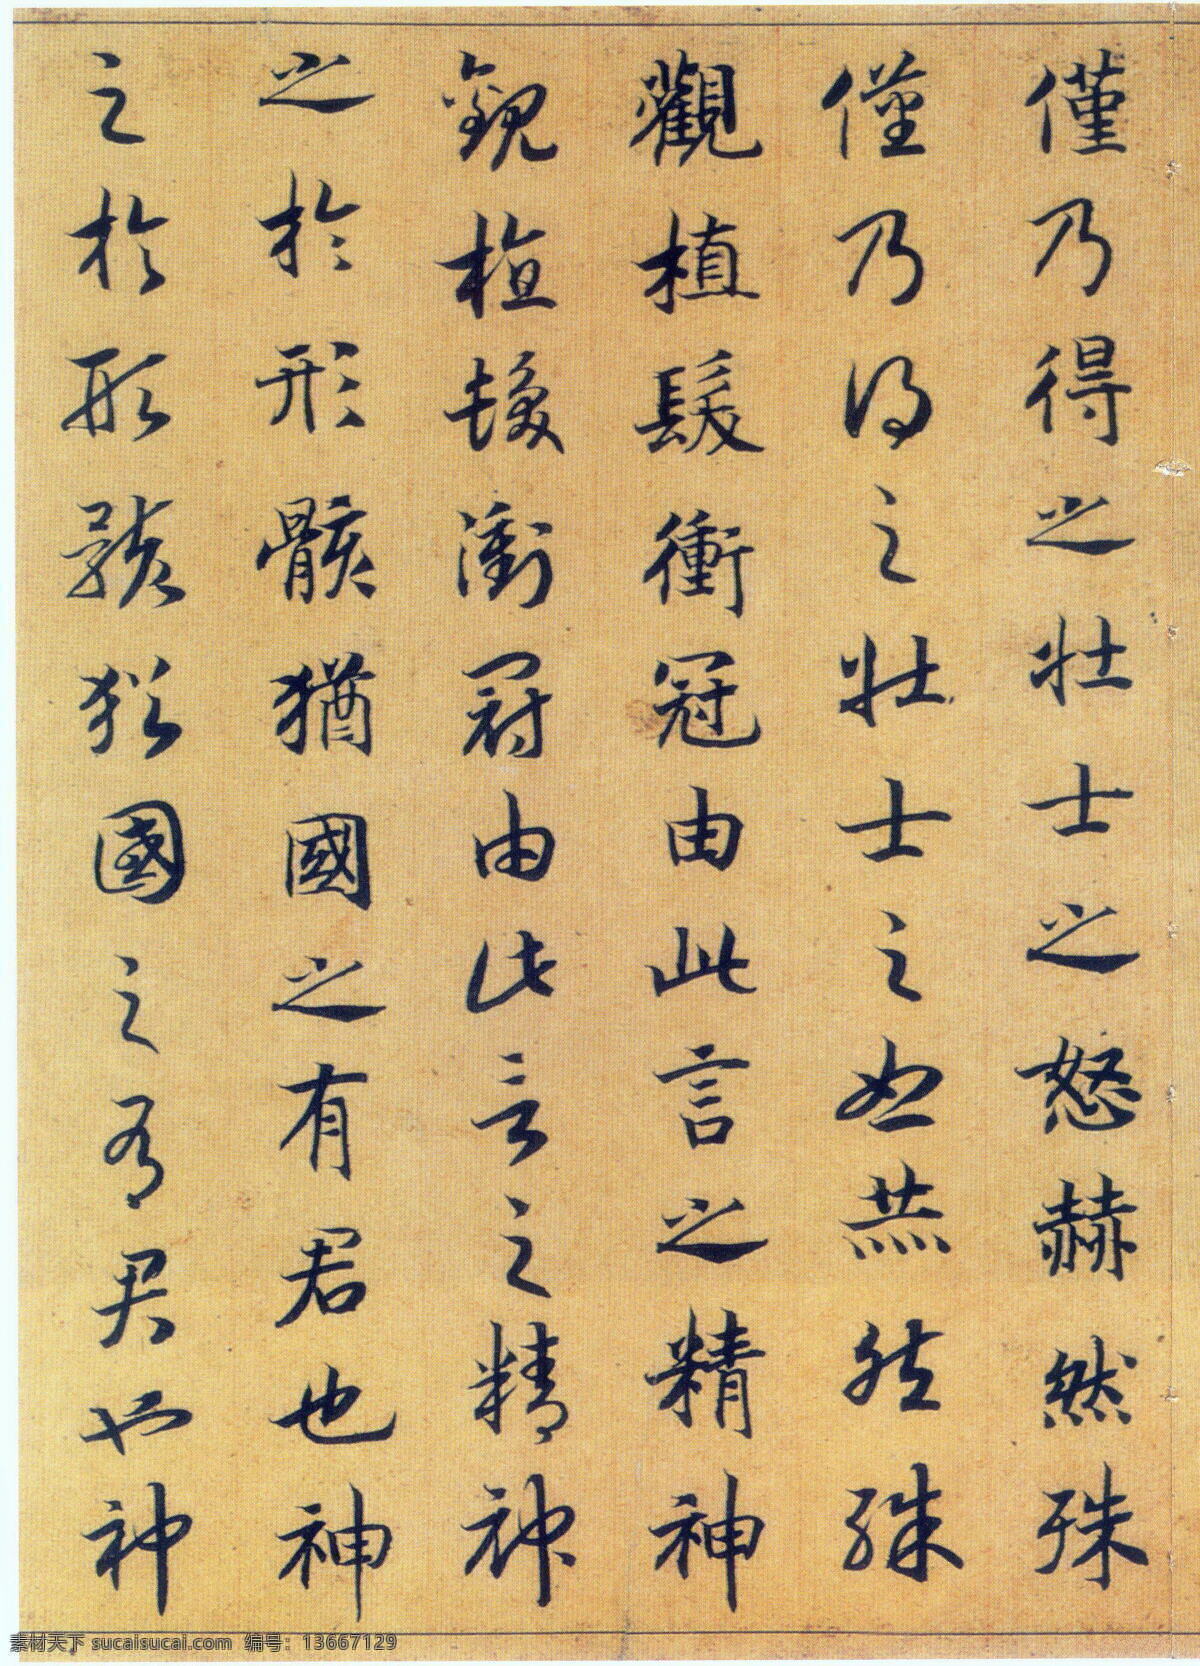 僅乃得之壯士之怒赫然殊
僅乃得之壯士之怒赫然殊
觀植髮衝冠由此言之精神
觀植髮衝冠由此言之精神
之於形骸猶國之有君也神
之於形骸猶國之有君也神
素材天下 sucaisucai.com 编号：13667129